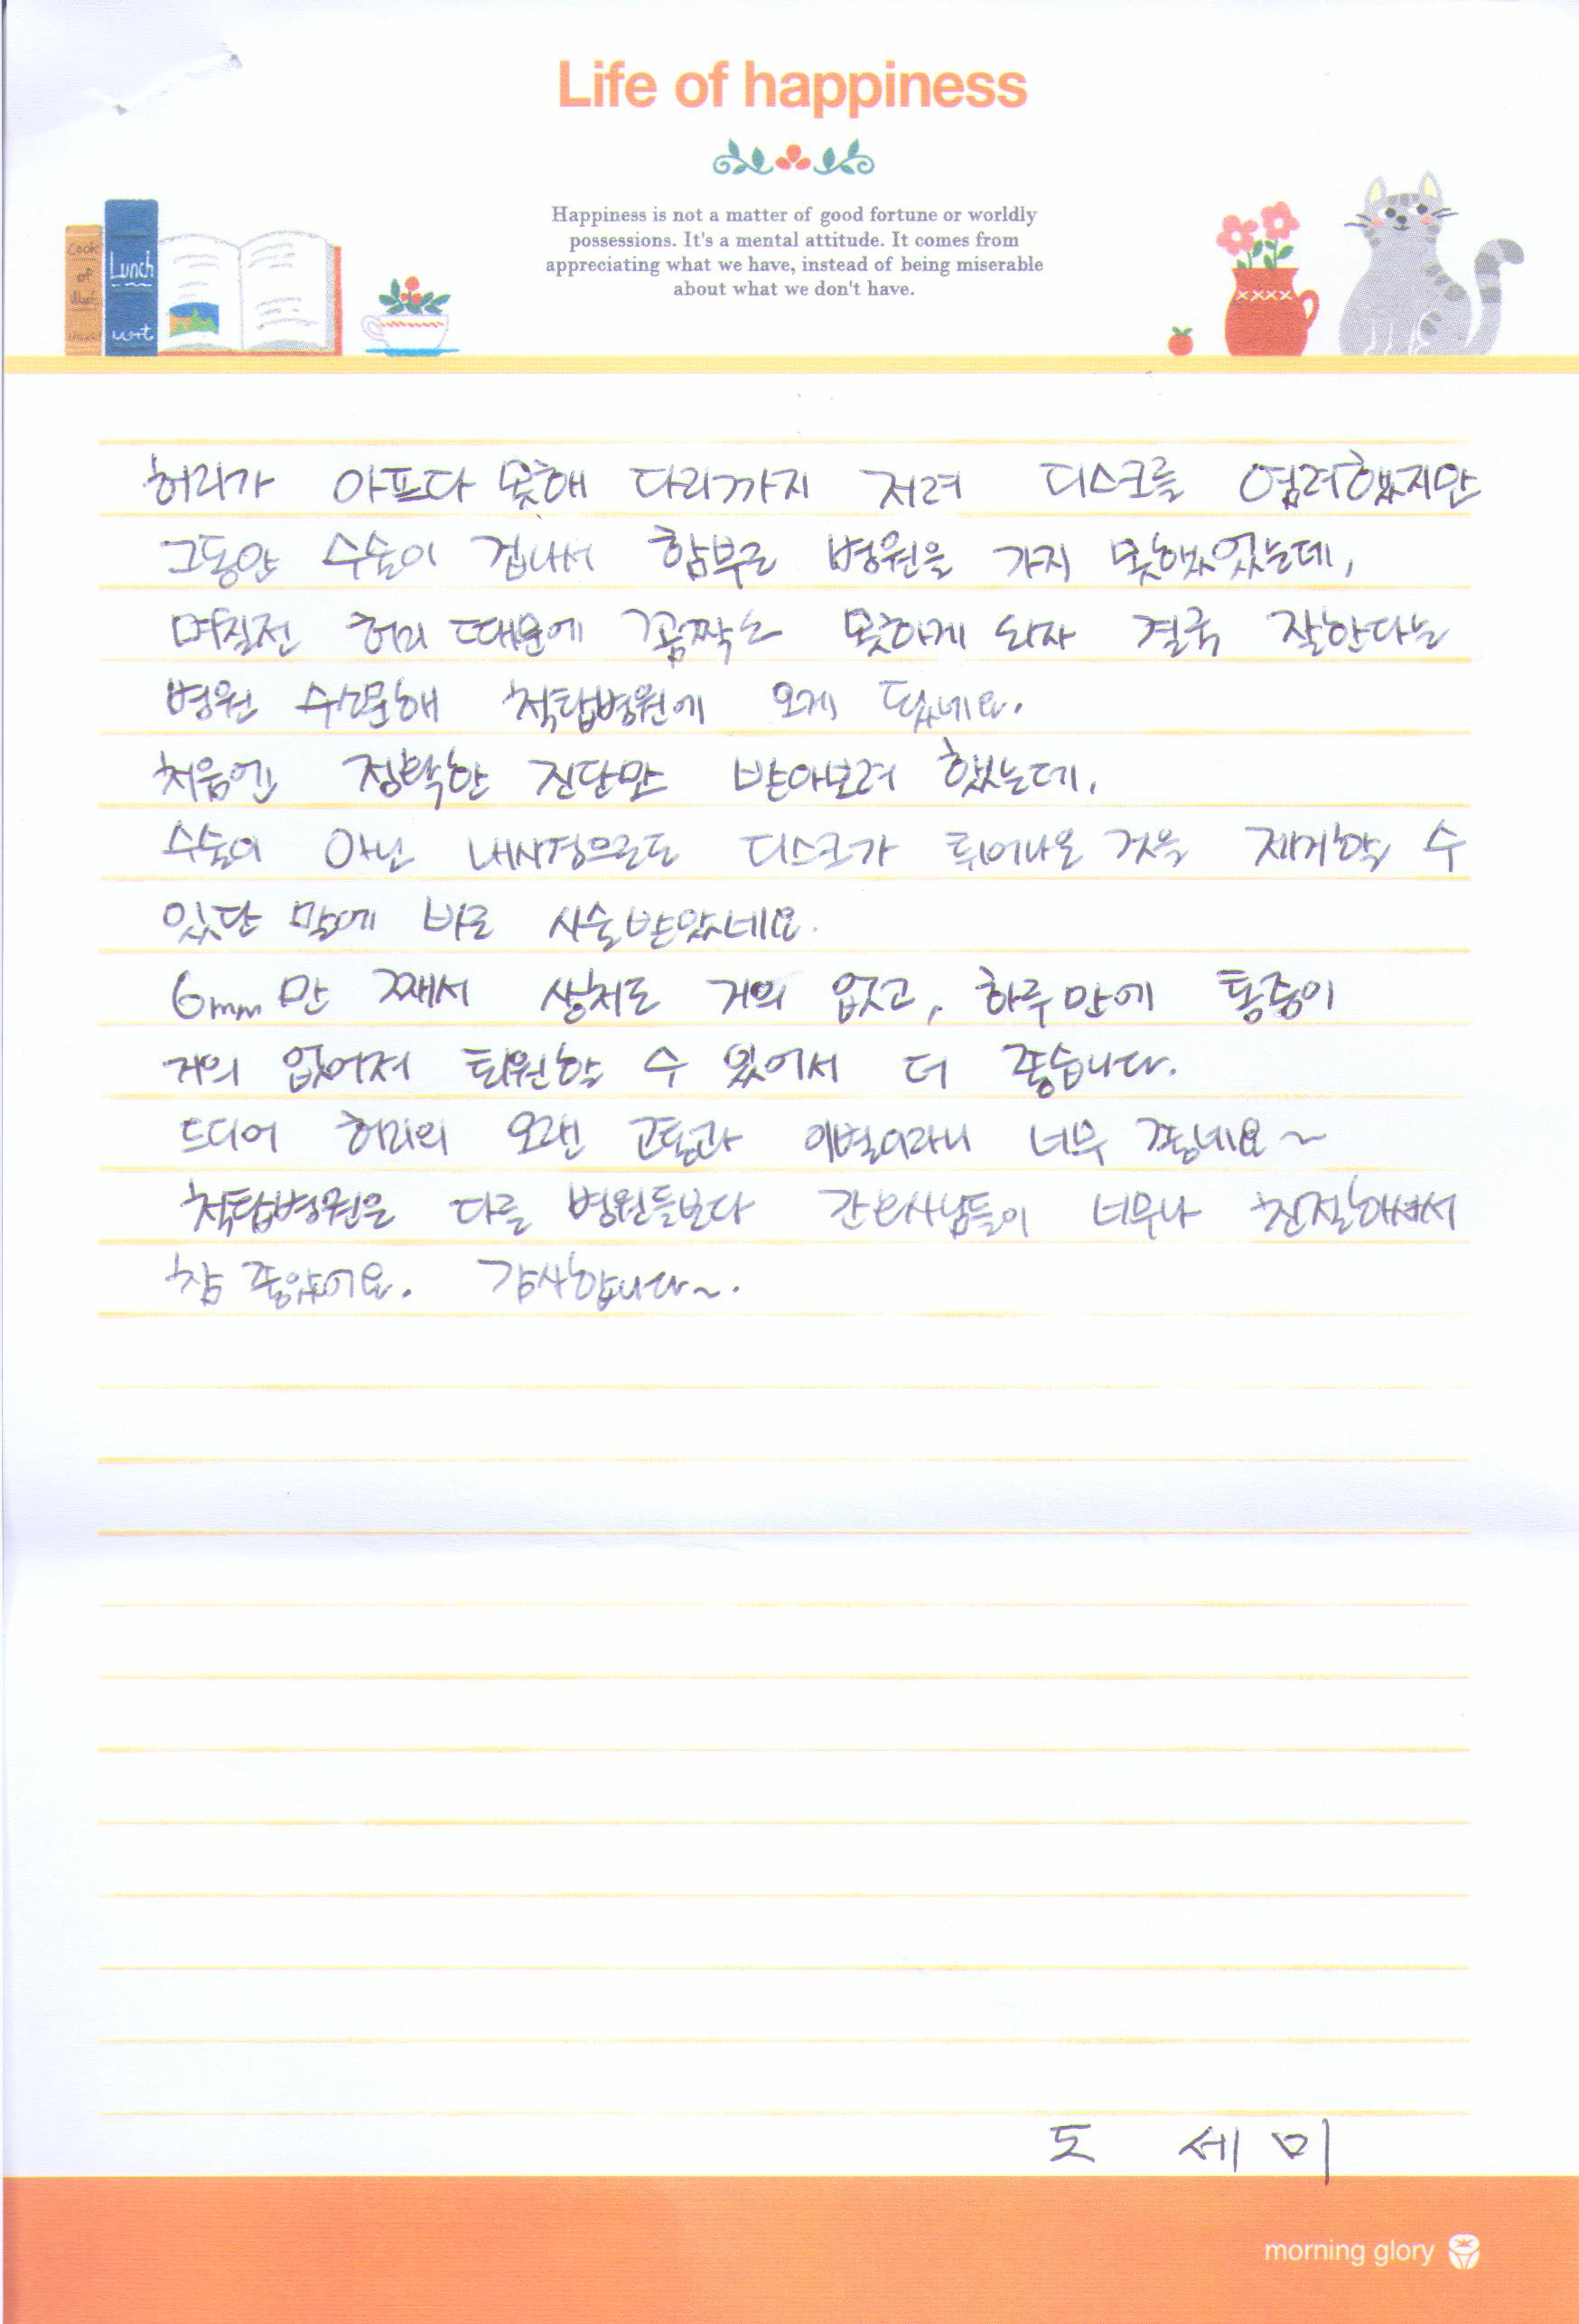 Life of happiness
Happiness is not a matter of good fortune or worldly
possessions. It's a mental attitude. It comes from
appreciating what we have, instead of being miserable
about what we don't have.
Cook
of
Lunch
허리가 아프다 못해 다리까지 저려 디스크를 염려했지만
그동안 수술이 겁나서 함부로 병원을 가지 못했었는데,
며칠전 허리 때문에 꼼짝도 못하게 되자 결국 잘한다는
병원 수소문해 척탑병원에 오게 됐네요.
처음엔 정확한 진단만 받아보려 했는데,
수술이 아닌 내시경으로도 디스크가 튀어나온 것을 제거할 수
있단 말에 바로 시술받았네요.
6mm만 째서 상처도 거의 없고, 하루만에 통증이
거의 없어져 퇴원할 수 있어서 더 좋습니다.
드디어 허리의 오랜 고통과 이별이라니 너무 좋네요~
척탑병원은 다를 병원들보다 간호사님들이 너무나 친절하셔서
참 좋았어요. 감사합니다~.
도 세미
morning glory